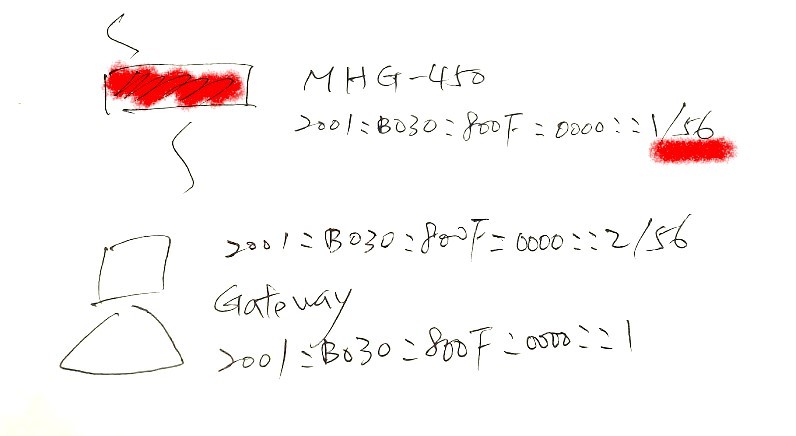 MHG-450
2001:B030:800F:0000::1/56
2001:B030:800F:0000::2/56
Gateway
2001:B030:800F:0000::1